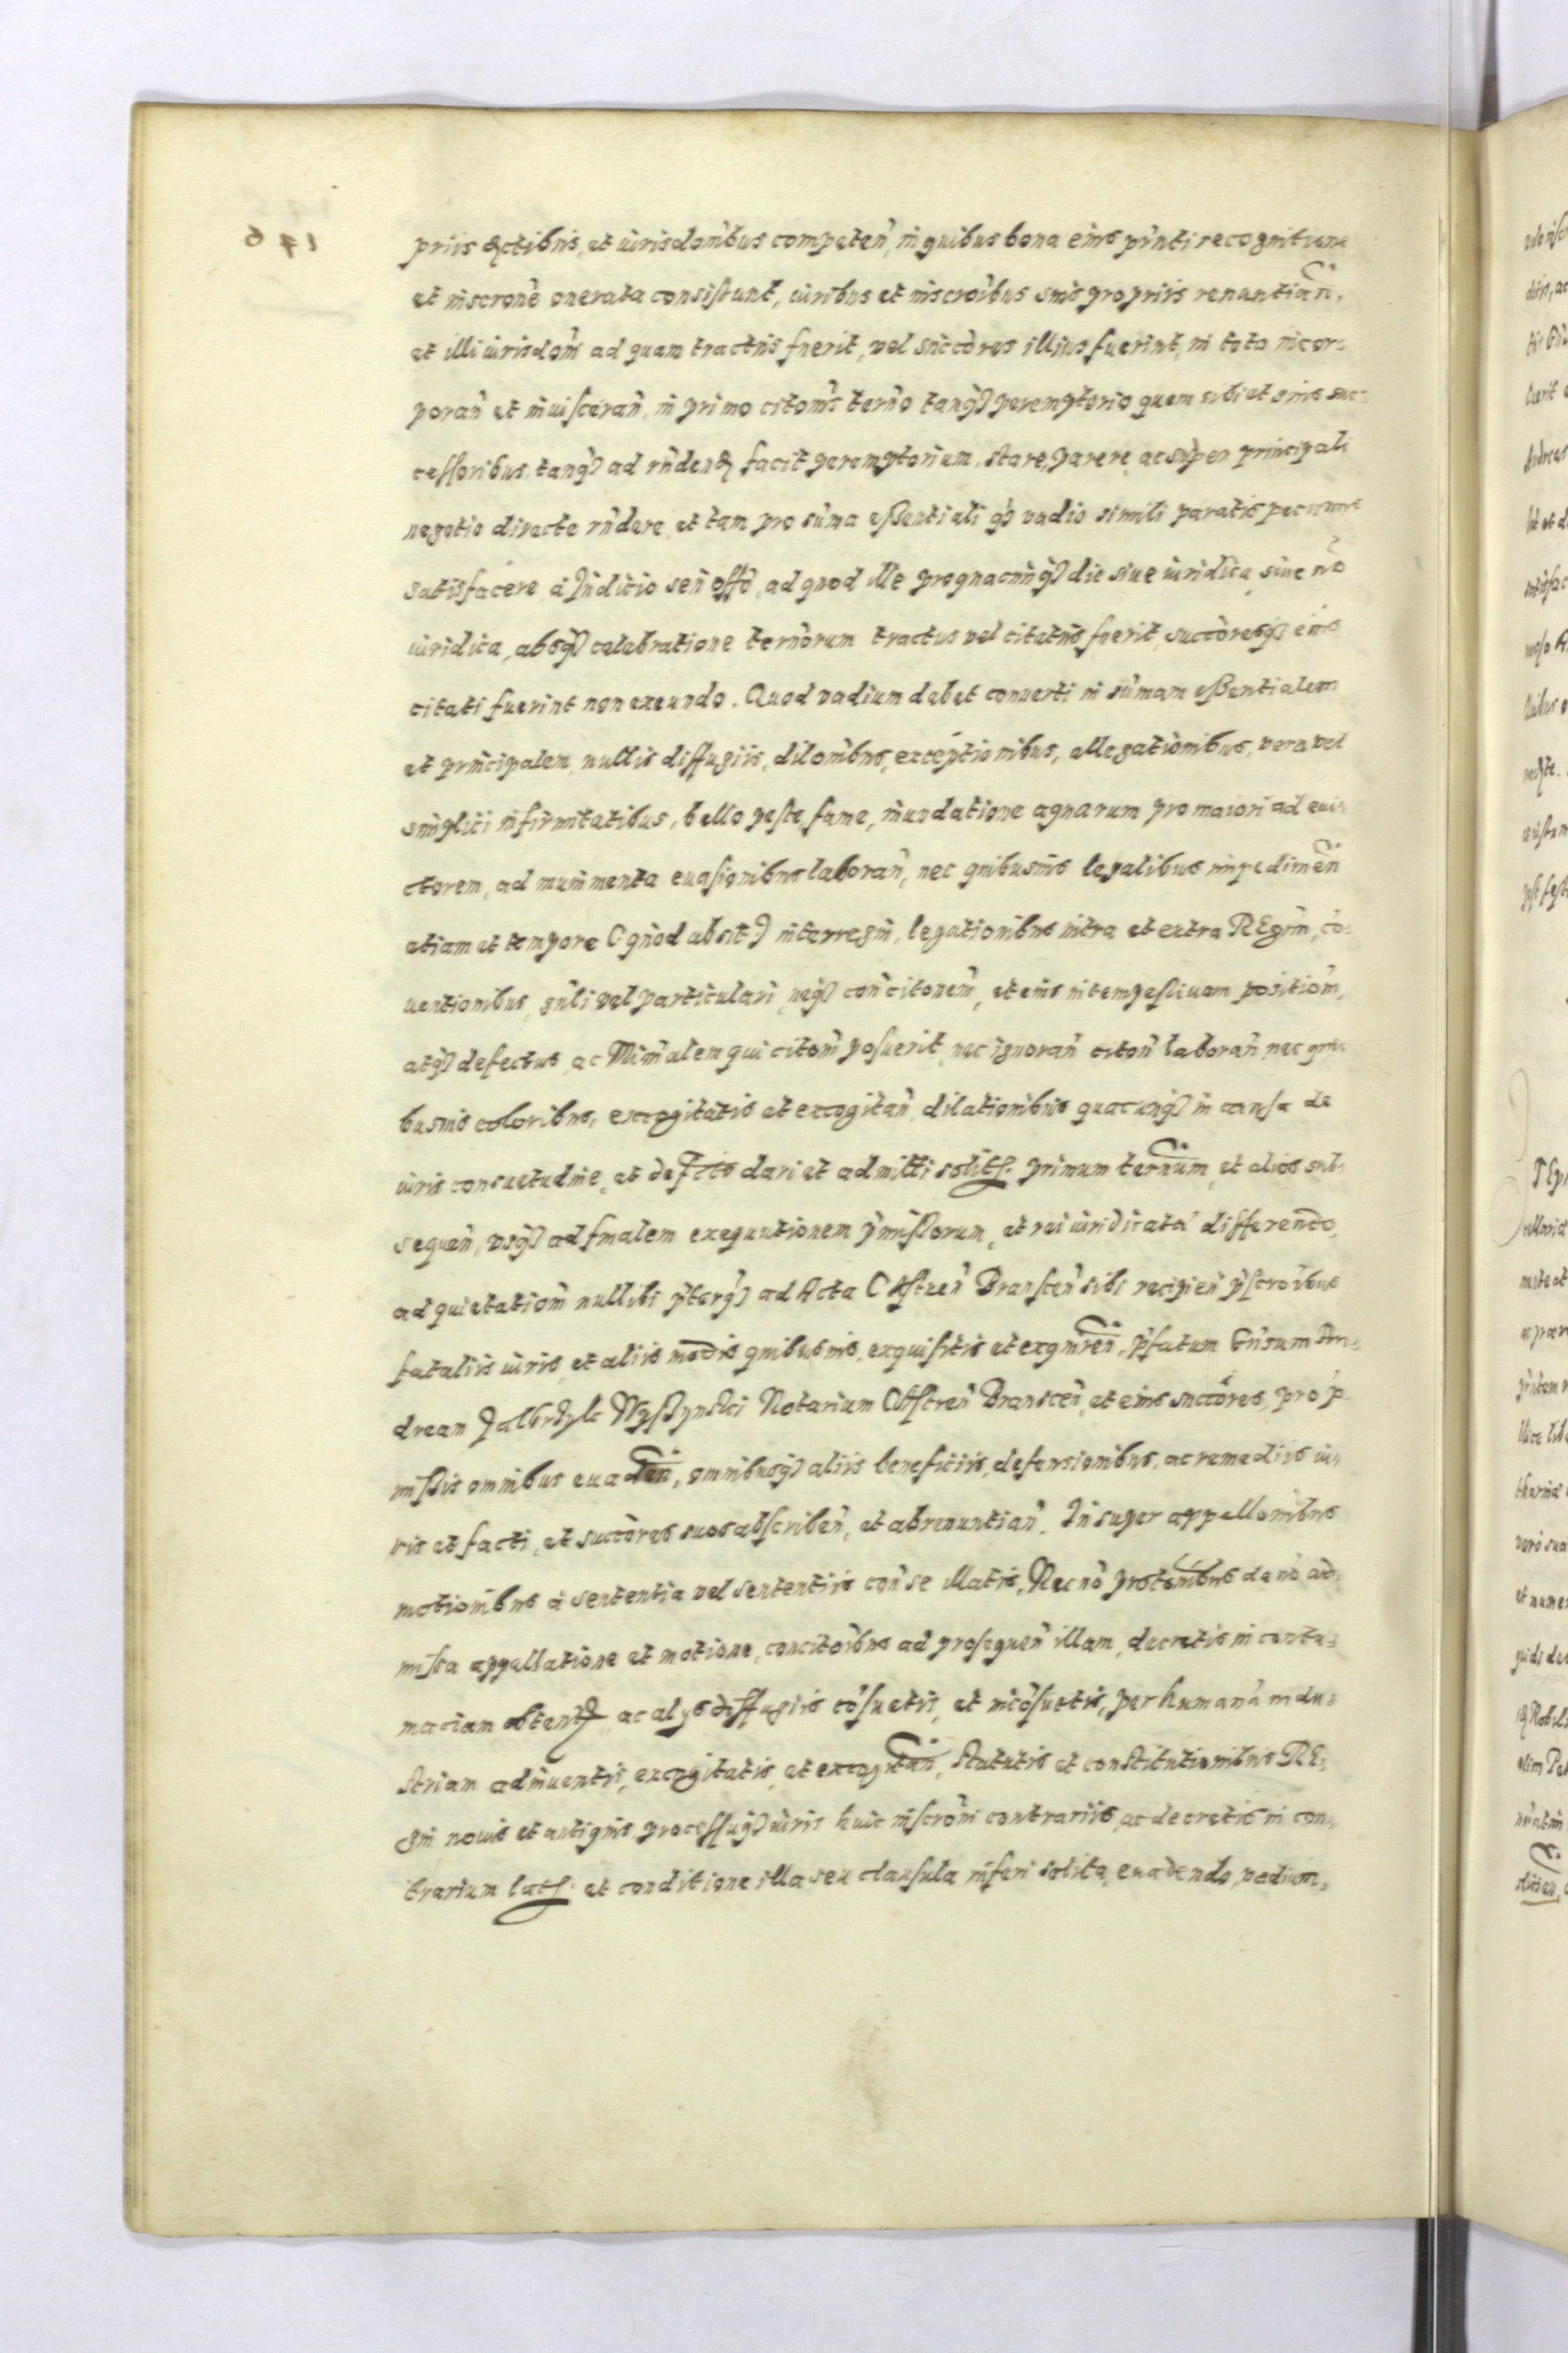 priis actibus, et iurisdoñibus competeñ, in quibus bona eius pñti recognitione
et inscrone onerata consistunt, iuribus et inscroibus suis propriis renuntiañ,
et illi iurisdoni ad quam tractus fuerit, vel succõres illius fuerint, in toto incor-
porañ et inuiscerañ, in primo citonis terño tanq₃ peremptorio quem sibi et suis suc-
cessoribus, tanq₃ ad rñdend facit peremptorium, stare, parere, ac super principali
negotio directe rñdere, et tam pro suma essentiali q₃ vadio simili paratis pecuniis
satisfacere, à Iudicio seu offo, ad quod ille pro quacunq₃ die siue iuridica, siue nõ
iuridica, absq₃ celebratione terñorum tractus vel citatus fuerit, succõresq₃ eius
citati fuerint non exeundo. Quod vadium debet conuerti in sumam essentialem
et principalem, nullis diffugiis, diloñibus, exceptionibus, allegationibus, vera vel
simplici infirmitatibus, bello peste, fame, inundatione aquarum pro maiori ad eui-
ctorem, ad munimenta euasionibus laborañ, nec quibusuis legalibus impedimeñ
etiam et tempore (quod absit) interregni, legationibus intra et extra REgni, cõ-
uentionibus, gñli vel particulari, neq₃ coñ citonem, et eius intempestiuam positioñ,
atq₃ defectus, ac Miñalem qui citoñ posuerit, nec ignorañ citoñ laborañ, nec qui-
busuis coloribus, excogitatis et excogitañ, dilationibus quacunq₃ in causa de
iuris consuetudine, et de fcto dari et admitti solits. primum terñum, et alios sub-
sequeñ, vsq₃ ad finalem exequutionem pmissorum, et rei iuridicatã differendo,
ad quietatioñ nullibi ptcrq₃ ad Acta CAstreñ Branscen sibi recipieñ pscroibus
fataliis iuris, et aliis modis quibusuis, exquisitis et exquireñ, pfatum Gñsum An-
drean Wyssynski Notarium CAstreñ Branscen, et eius succtores, pro p-
missis omnibus euadeñ, omnibusq₃ aliis beneficiis, defensionibus, ac remediis iu-
ris et facti, et succõres suos abscribeñ, et abrenuntiañ. Insuper appelloñibus
motionibus à sententia vel sententiis coñ se illatis, Necnõ protoñibus de nõ ad-
missa appellatione et motione, concitoibus ad prosequeñ illam, decretis in contu-
maciam obtent, ac alys diffugiis cõsuetis, et incõsuetis, per humanã indu-
striam adinuentis, excogitatis, et excogitañ, statutis et constitutionibus RE-
gni nouis et antiquis, processuq₃ iuris huic inscroni contrariis, ac decretis in con-
trarium lats. et conditione illa seu clausula inseri solita, euadendo, vadium,